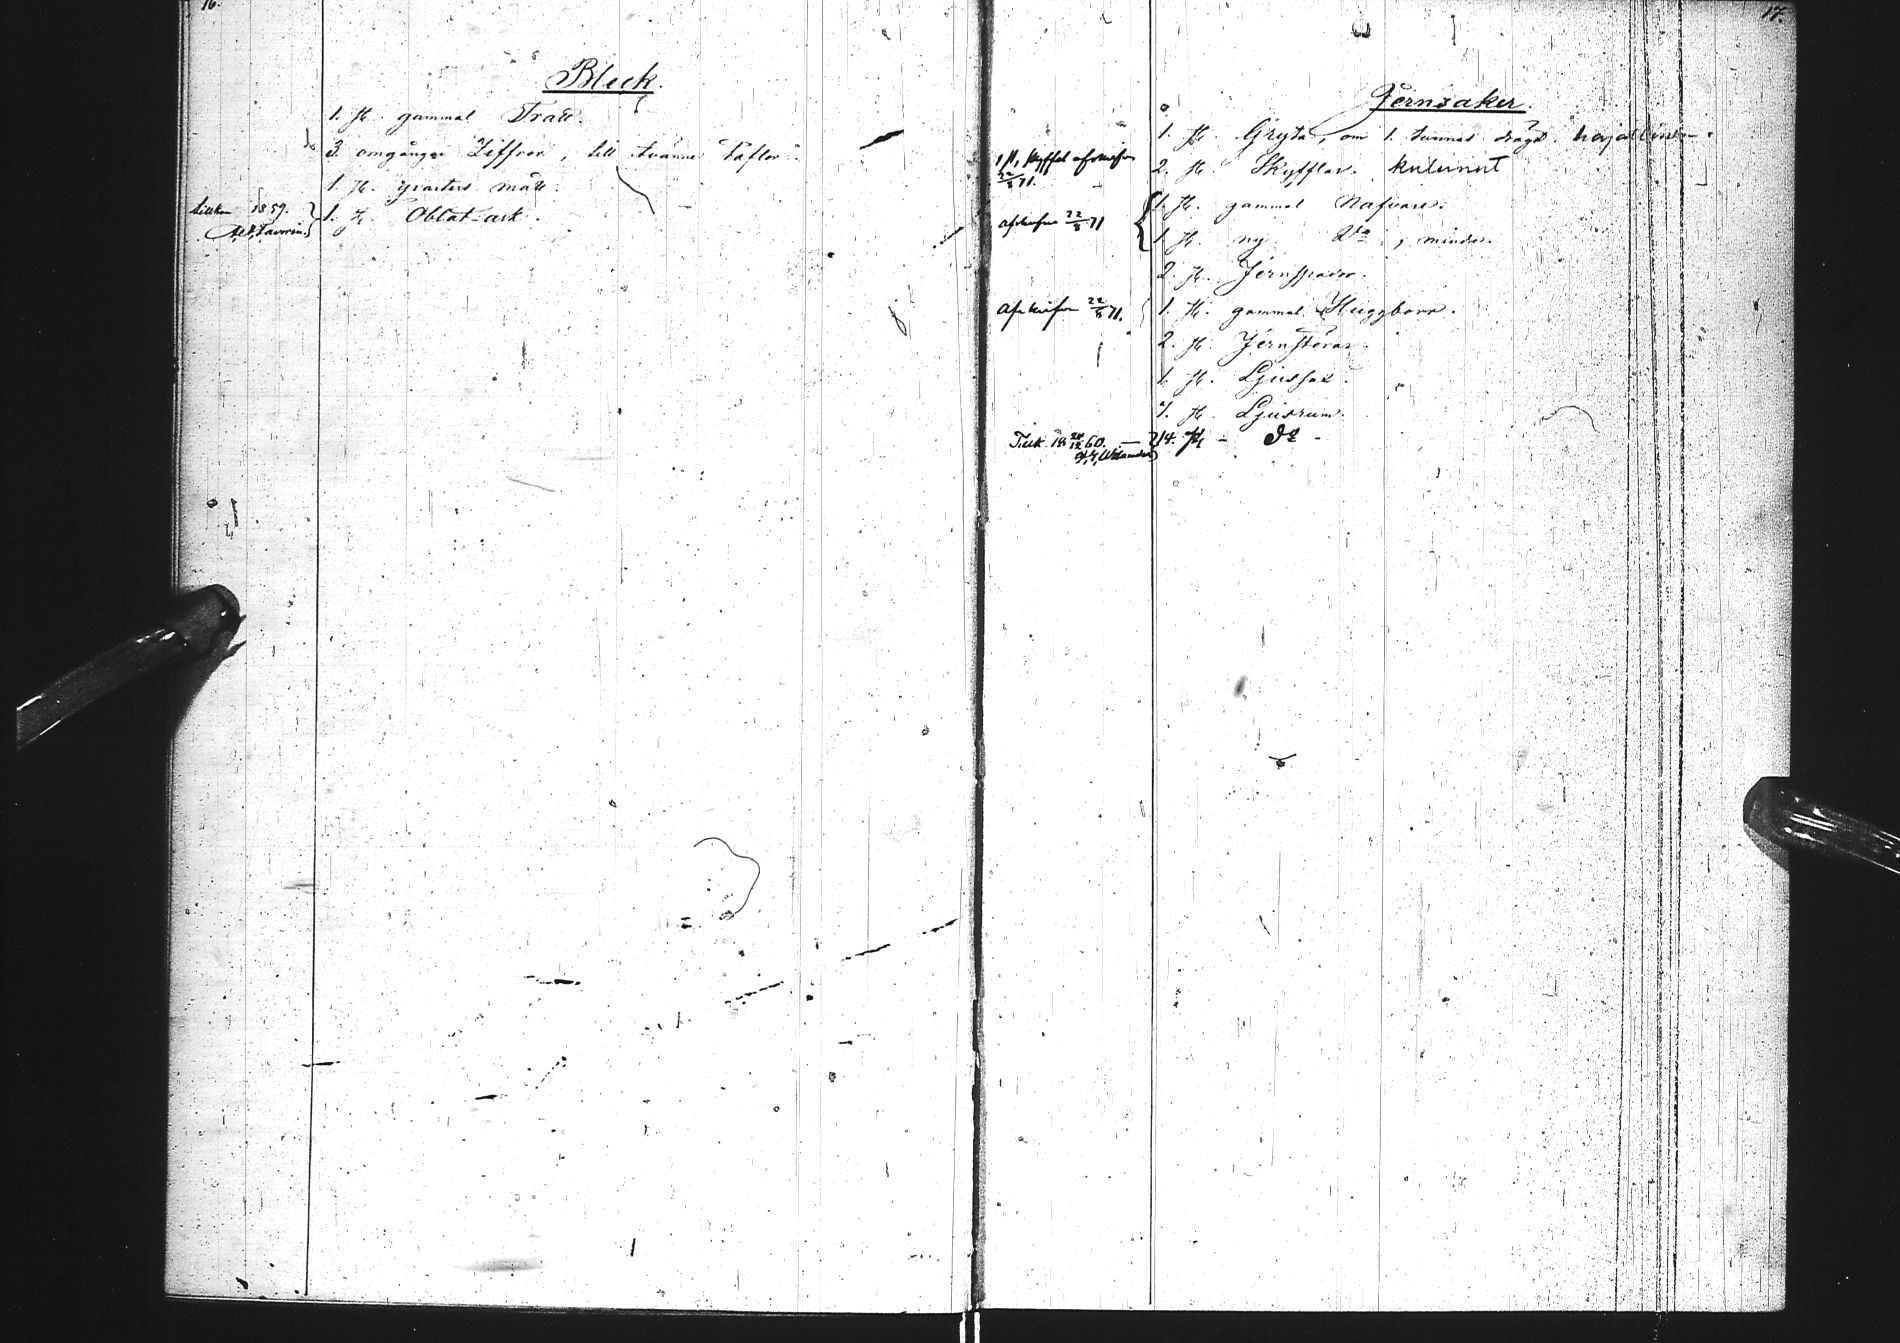 16.
Bleck.
1. st. gammal Tratt.
3. omgångar Ziffror, till tvänne Taflor.
1. st. qvarters mått.
Tillkom 1859.
1. st. Oblat ask.
17.
Jernsaker.
1. st. Gryta, om 1. tunnas drägt.
1 st. skyffel afskrifven 22/8 71.
2. st. Skyfflar.
1. st. gammal Nafvare.
afskrifne 22/8 71
1. st. ny Dto, mindre.
2. st. Jernspador.
afskrifven 22/8 71.
1. st. gammal Huggborr.
2. st. Jernstörar.
1. st. Ljussax.
7. st. Ljusrum.
Tillk. 18 24/12 60. —
14. st - Do -